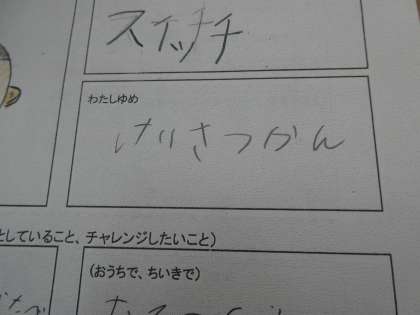 スイッチ
わたしゆめ
けいさつかん
としていること、チャレンジしたいこと)
(おうちで、ちいきで)